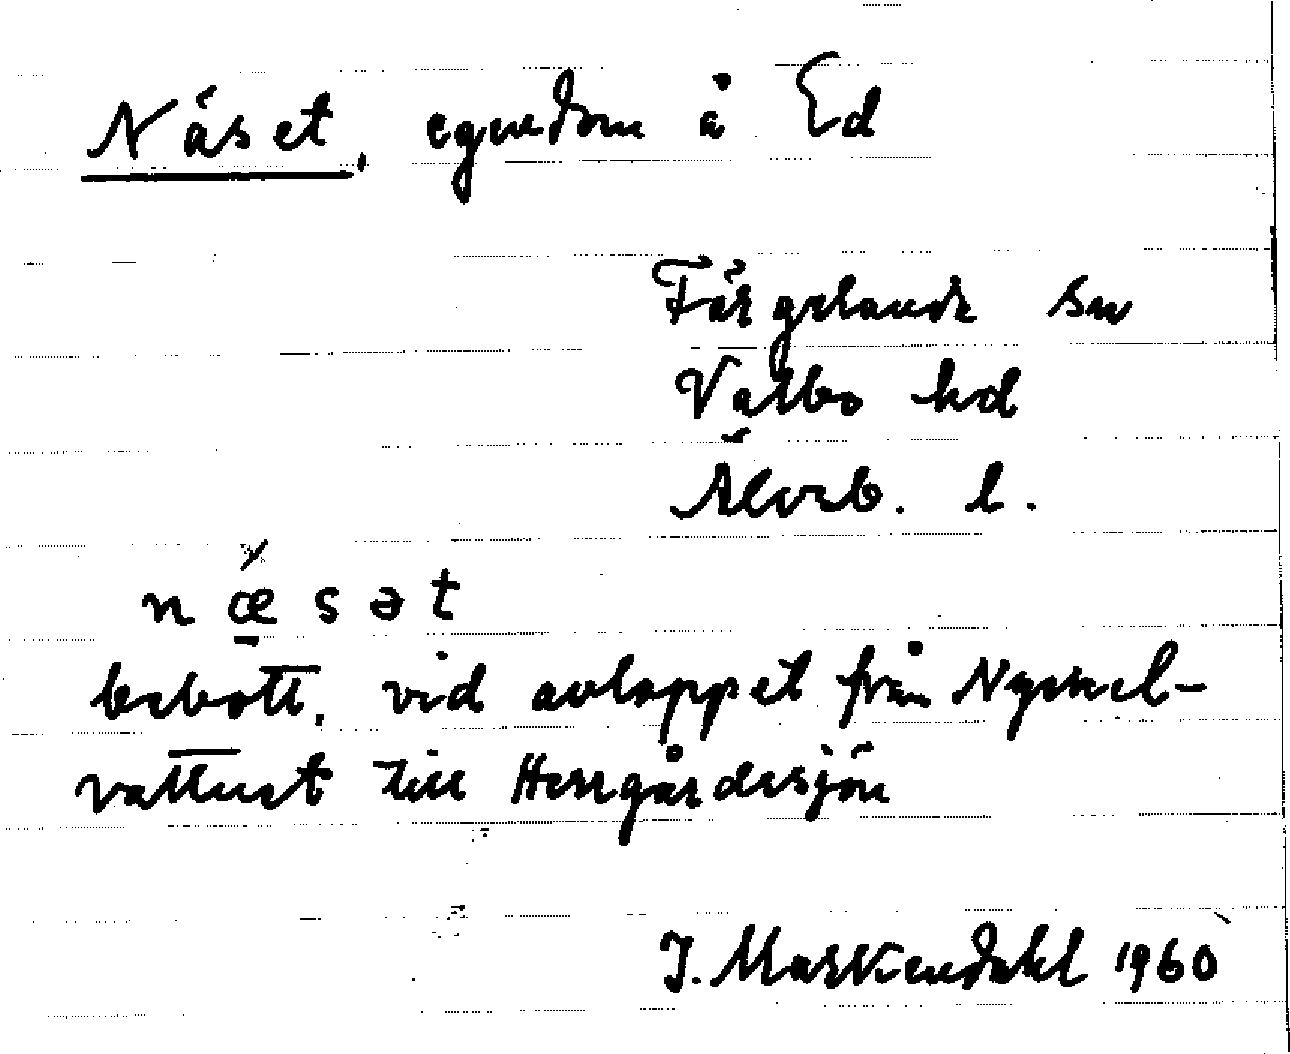 Näset, egendom å Ed
Färgelanda sn
Valbo hd
Älvsb. l.
næ̀sət
bebott, vid avloppet från Nyckel-
vattnet till Herrgårdssjön
J. Markendahl 1960